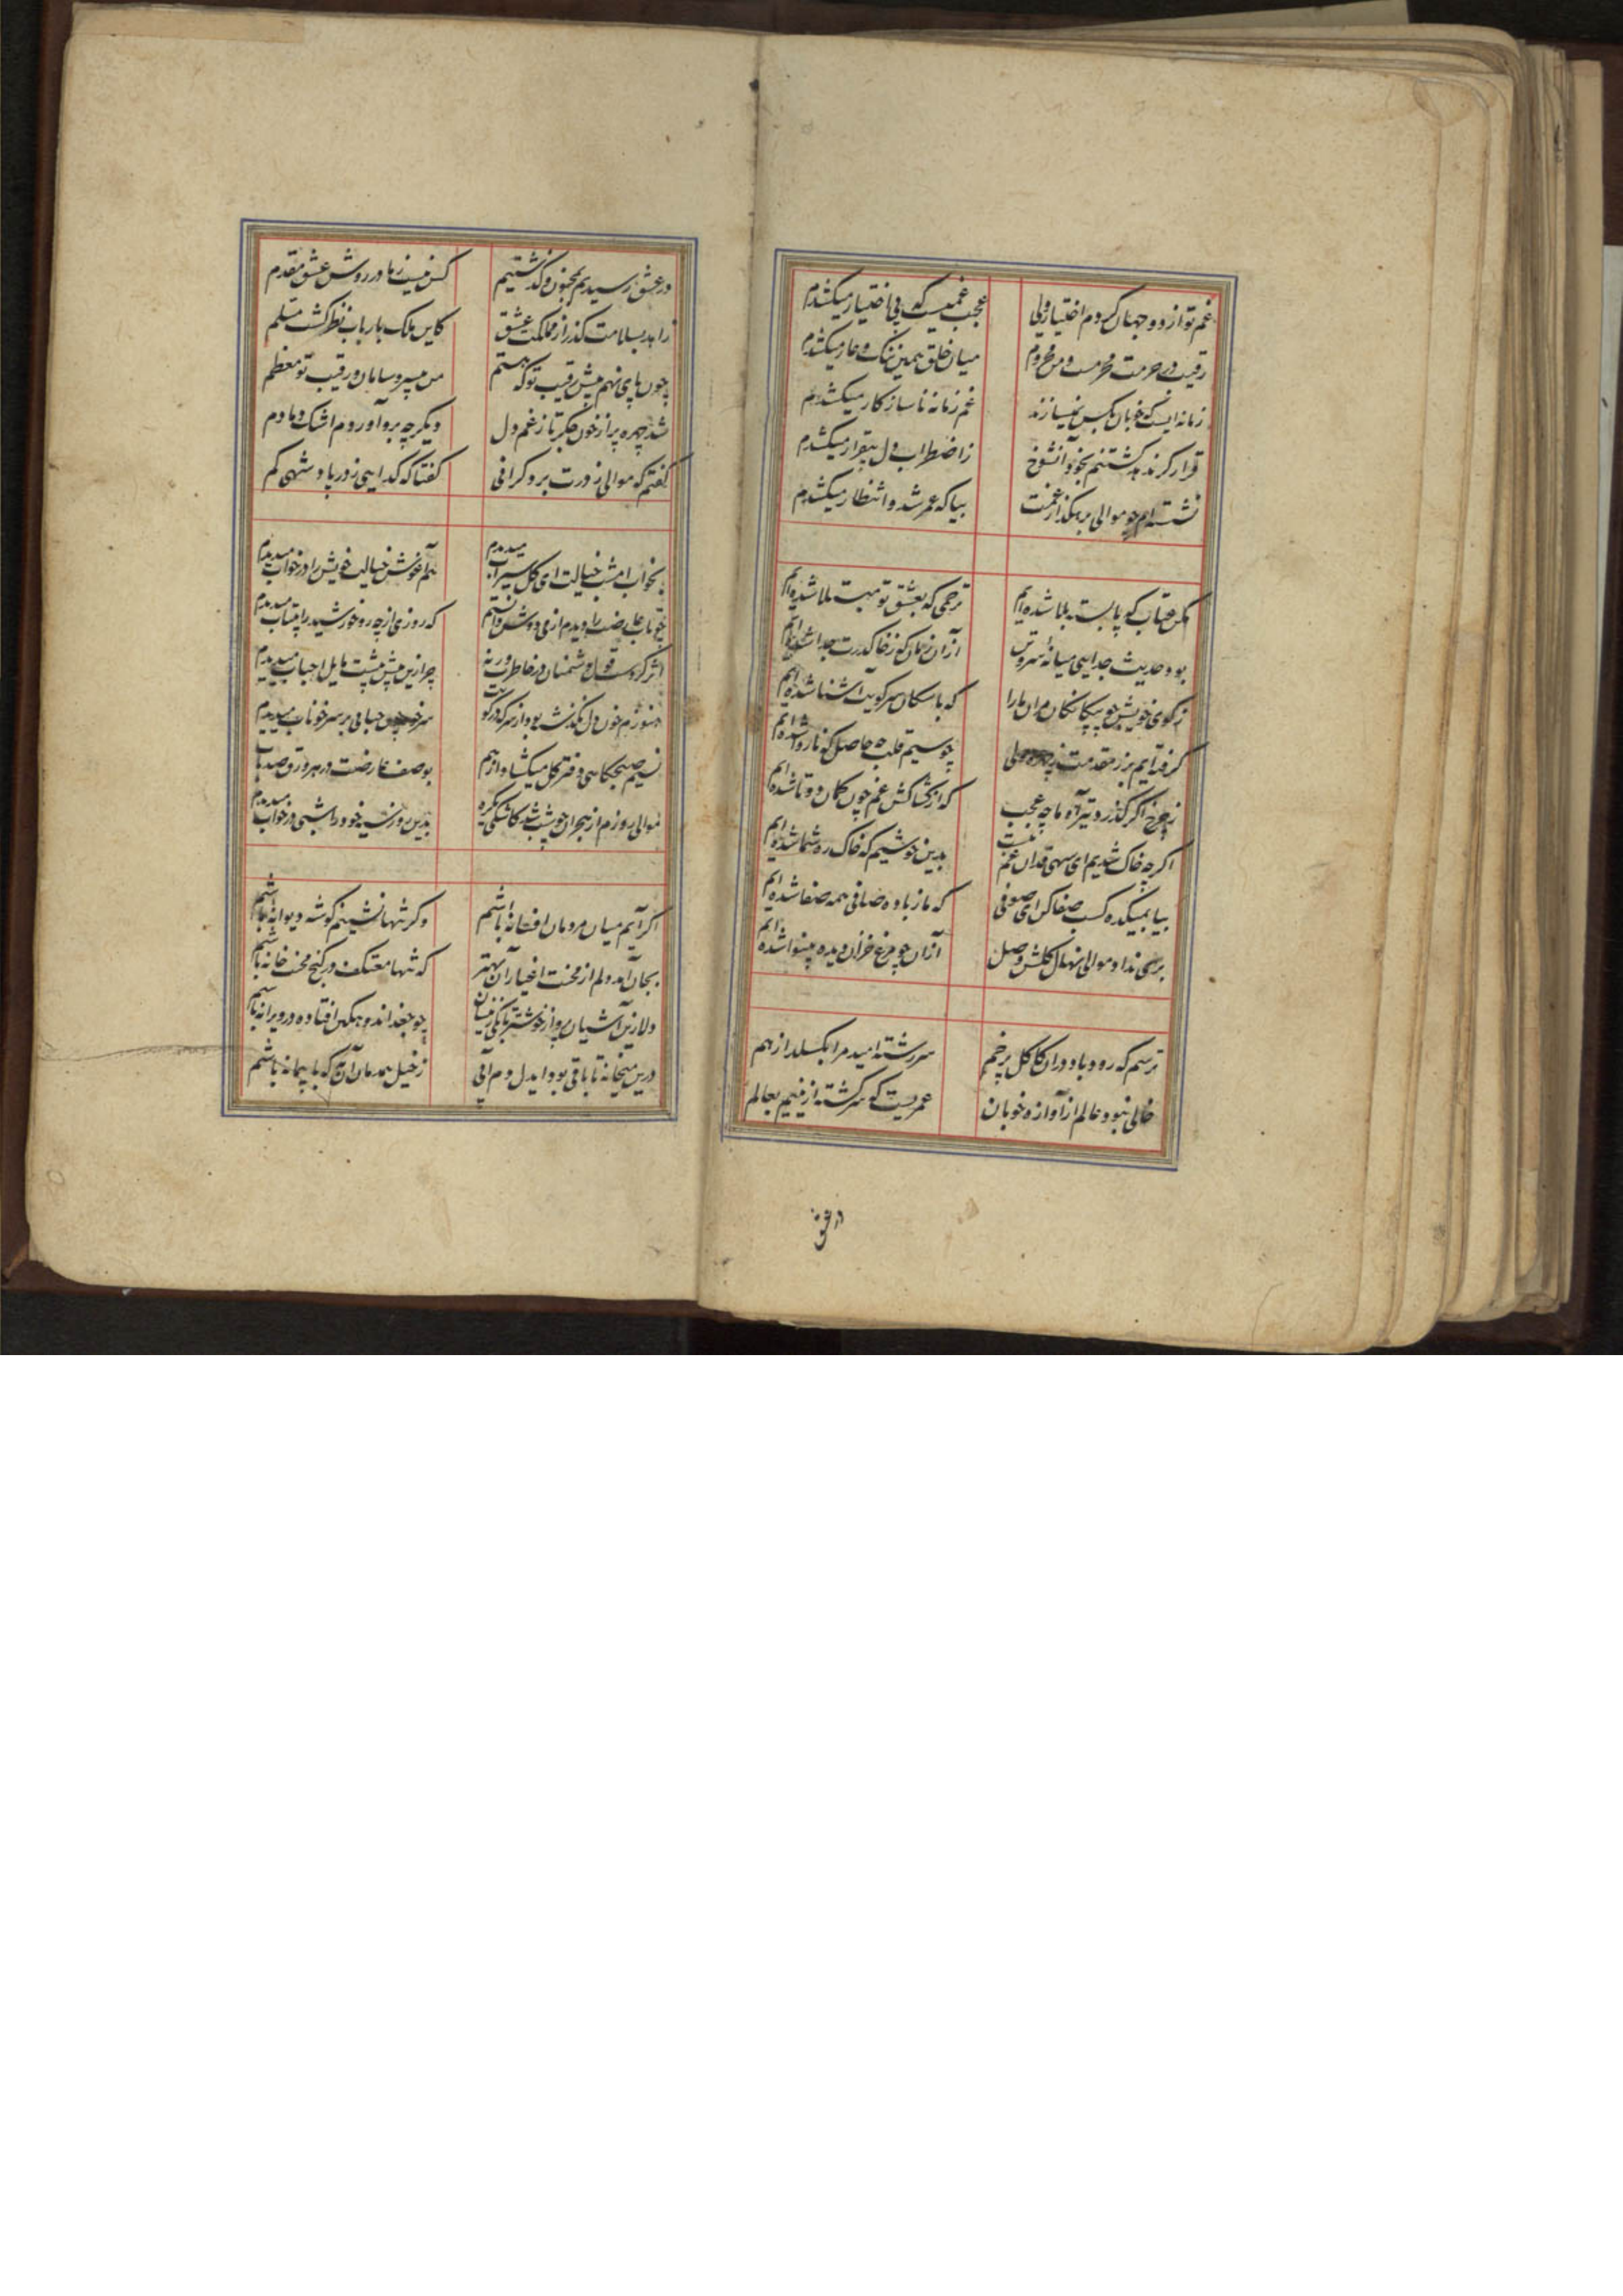 غم تو از دو جهان کردم اختیار ولی
عجب غمیست که بی اختیار میکشدم
رقیب در حرمت محرمست و من محروم
میان خلق همین ننک و عار میکشدم
زمانه ایست که خوبان بکس نمیسازند
غم زمانه ناسازکار میکشدم
قرار کرد بکشتنم بخود آنشوخ
ز اضطراب دل بیقرار میکشدم
نشسته ام چو موالی برهکذار غمت
بیا که عمر شد و انتظار میکشدم
مکن عتاب که پابسته بلا شده ایم
ترحمی که بعشق تو مبتلا شده ایم
بود حدیث جدایی میانه
از آن زمان که ز خاک درت جدا شده ایم
ز کوی خویش چو بیکانکان مران ما را
که با سکان سر کویت آشنا شده ایم
کرفته ایم بزر مقدمت
چو سیم قلب چه حاصل که ناروا شده ایم
ز چرخ اکر کذرد تیر آه ما چه عجب
که از کشاکش غم چون کمان دوتا شده ایم
اکرچه خاک شدیم ای سهی قدان غم نیست
بدین خوشیم که خاک ره شما شده ایم
بیا بمیکده کسب صفا کن ای صوفی
که ما ز باده صافی همه صفا شده ایم
بری نداد موالی نهال کلشن وصل
از آن چو مرغ خزان دیده بینوا شده ایم
ترسم که رود باد در آن کاکل پرخم
سررشته امید مرا بکسلد از هم
خالی نبود عالم از آوازه خوبان
عمریست که سرکشته ازینیم بعالم
در عشق
در عشق رسیدیم بمجنون و کذشتیم
کس نیست ز ما در روش عشق مقدم
زاهد بسلامت کذر از مملکت عشق
کاین ملک بارباب نظر کشت مسلم
چون پای نهم پیش رقیب تو که هستم
من بیسر و سامان و رقیب تو معظم
شد چهره پر از خون جکر تا ز غم دل
دیکر چه برو آورد م اشک دمادم
کفتم که موالی ز درت برد کرانی
کفتا که کدایی ز در پادشهی کم
بخواب امشب خیالت ای کل سیراب میدیدم
هم آغوش خیالت خویش را در خواب میدیدم
چو تاب عارضت را دیدم از می دوش دانستم
که روزی از چه رو خورشید را بیتاب میدیدم
اثر کردست قول دشمنان در خاطرت ورنه
چرا زین پیش بیشت مایل احباب میدیدم
هنوزم خون دل نکذشته بود از سر که در کویت
سر خود چون حبابی بر سر خوناب میدیدم
نسیم صبحکاهی دفتر کل میکشاد از هم
بوصف عارضت در هر ورق صد باب
موالی روزم از هجران چو شب شد کاشکی یکره
بدین روز سیه خود را شبی در خواب میدیدم
اکر آیم میان مردمان افسانه باشم
وکر تنها نشینم کوشه دیوانه باشم
بجان آمد دلم از محنت اغیار آن بهتر
که تنها معتکف در کنج محنت خانه باشم
دلا زین آشیان پرواز خوشتر تا بکی زینسان
چو جغد اندوهکین افتاده در ویرانه باشم
درین میخانه تا باقی بود ایدل دم آبی
ز خیل همدمان آن به که با پیمانه باشم